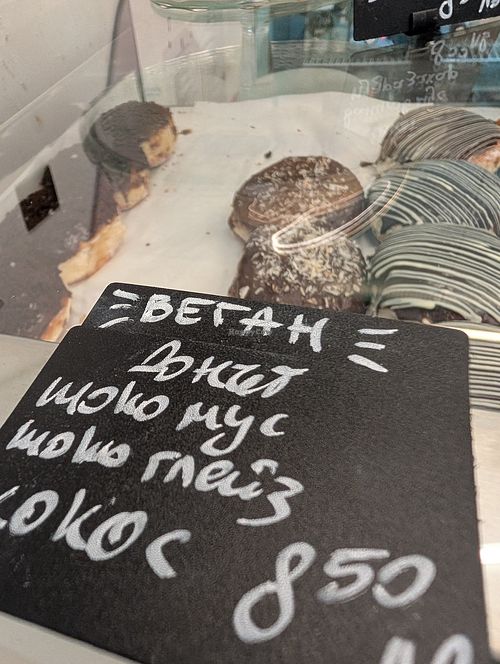 ВЕГАН
донът
шоко мус
шоко глейз
кокос
850